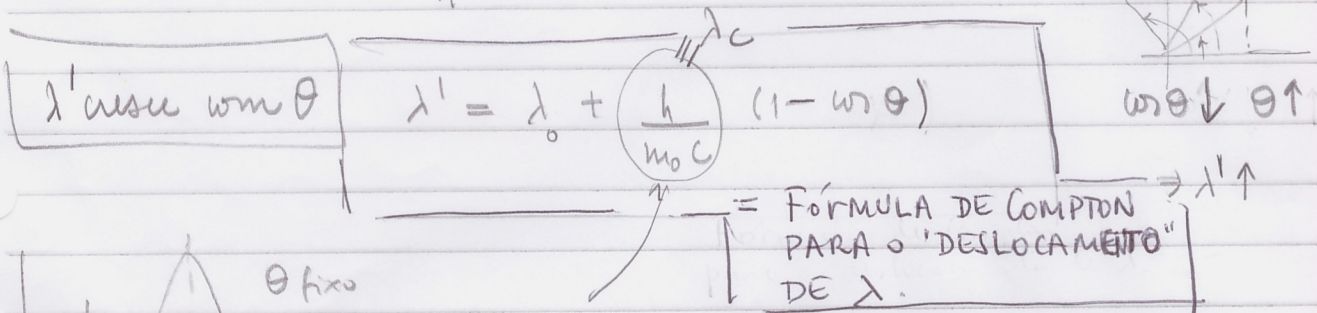 λ' cresce com θ
λ' = λ₀ + h/(m₀ c) (1 − cos θ)
≡ λ_C
cos θ ↓ θ ↑
⇒ λ' ↑
= FÓRMULA DE COMPTON
PARA O "DESLOCAMENTO"
DE λ.
θ fixo